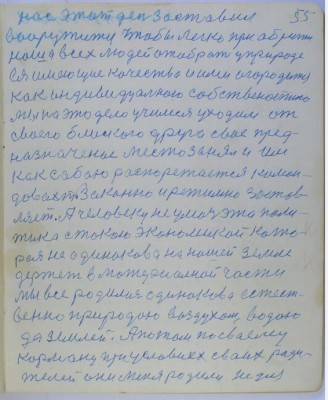 нас этот ден заставил 55
вооружити чтобы легко приобрити
наш всех людей отобрать у природе
ся имеющие качества и ими огородится
как индивидуалною собственостию
мы на это дело учимся уходим от
своего близкого друга свое пред-
назначеное место заняли им
как сабою распорежается коман-
довать Законно и режимно застов-
ляет. А человеку не умолу эта поли-
тика с такою экономикой кото-
рая не одинакова на нашей земле
держет в материалной части
мы все родилия одинакова естест-
венно природою воздухом, водою
да землей. А потом по своему
карману при условиех своих роди-
телей они меня родили не для